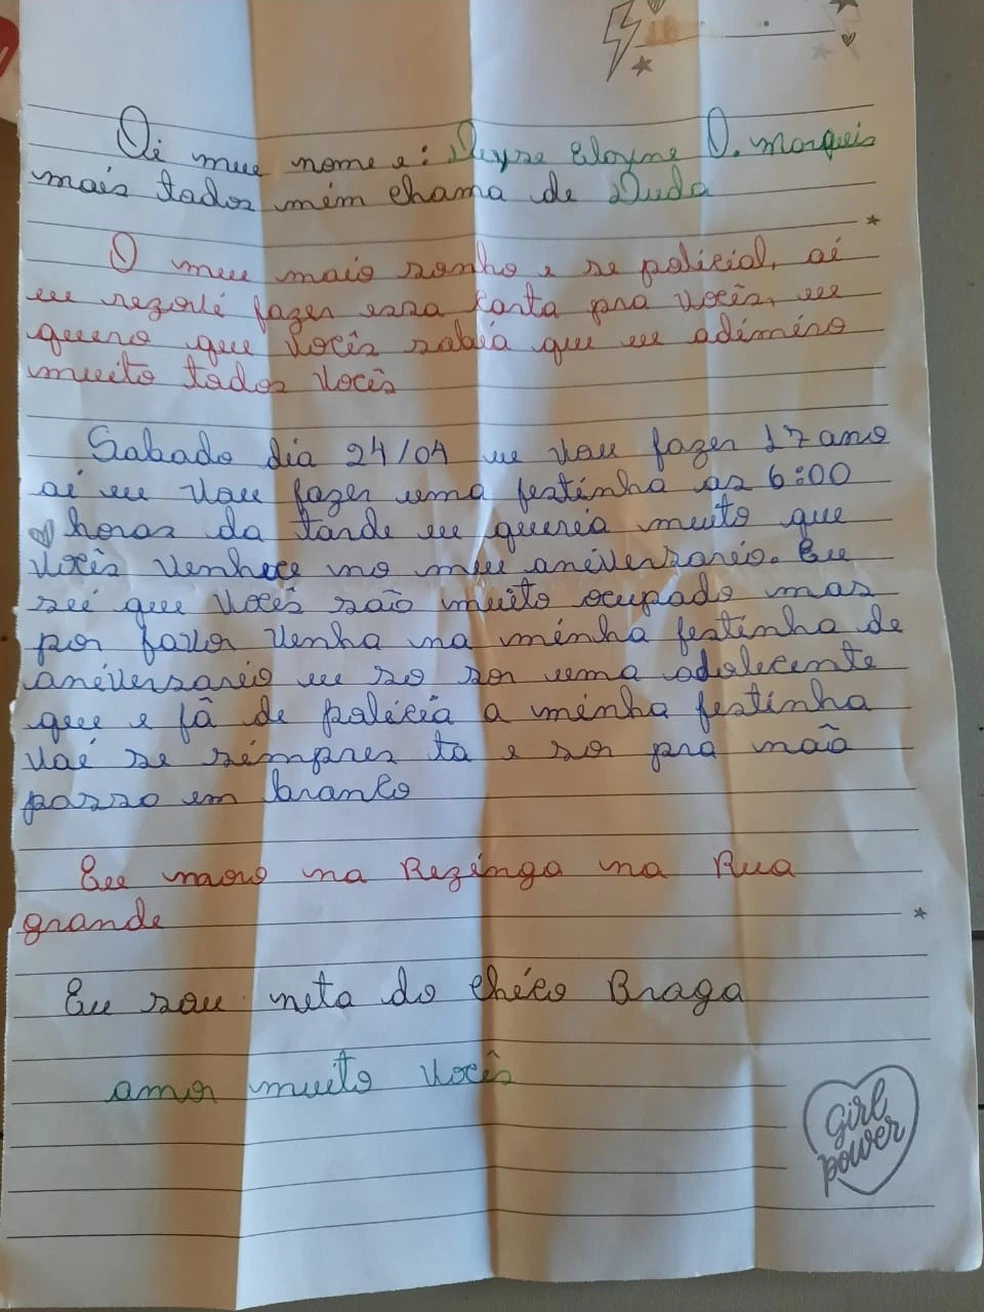 Oi meu nome e: Deyse Eloyne O. marqueis
mais tados mim chama de Duda
O meu maio sonho e se policial, ai
eu rezouvi fazer essa karta pra vocês, eu
quero que vocês sabia que eu adimiro
muito tados vocês
Sabado dia 24/04 eu vou fazer 17 ano
ai eu vou fazer uma festinha as 6:00
horas da tarde eu queria muito que
vocês venhece no meu aniversario. Eu
sei que vocês são muito ocupado mas
por favor venha na minha festinha de
aniversario eu so sor uma adolecente
que e fã de policia a minha festinha
vai se simpres ta e sor pra não
passo em branko
Eu moro na Rezinga na Rua
grande
Eu sou neta do chico Braga
amor muito vocês
girl
power